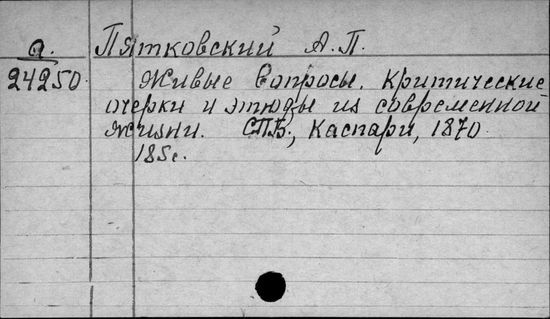 а. Пятковский А. П.
24250. Живые вопросы. Критические
очерки и этюды из современной
жизни. СПБ., Каспари, 1870.
185с.